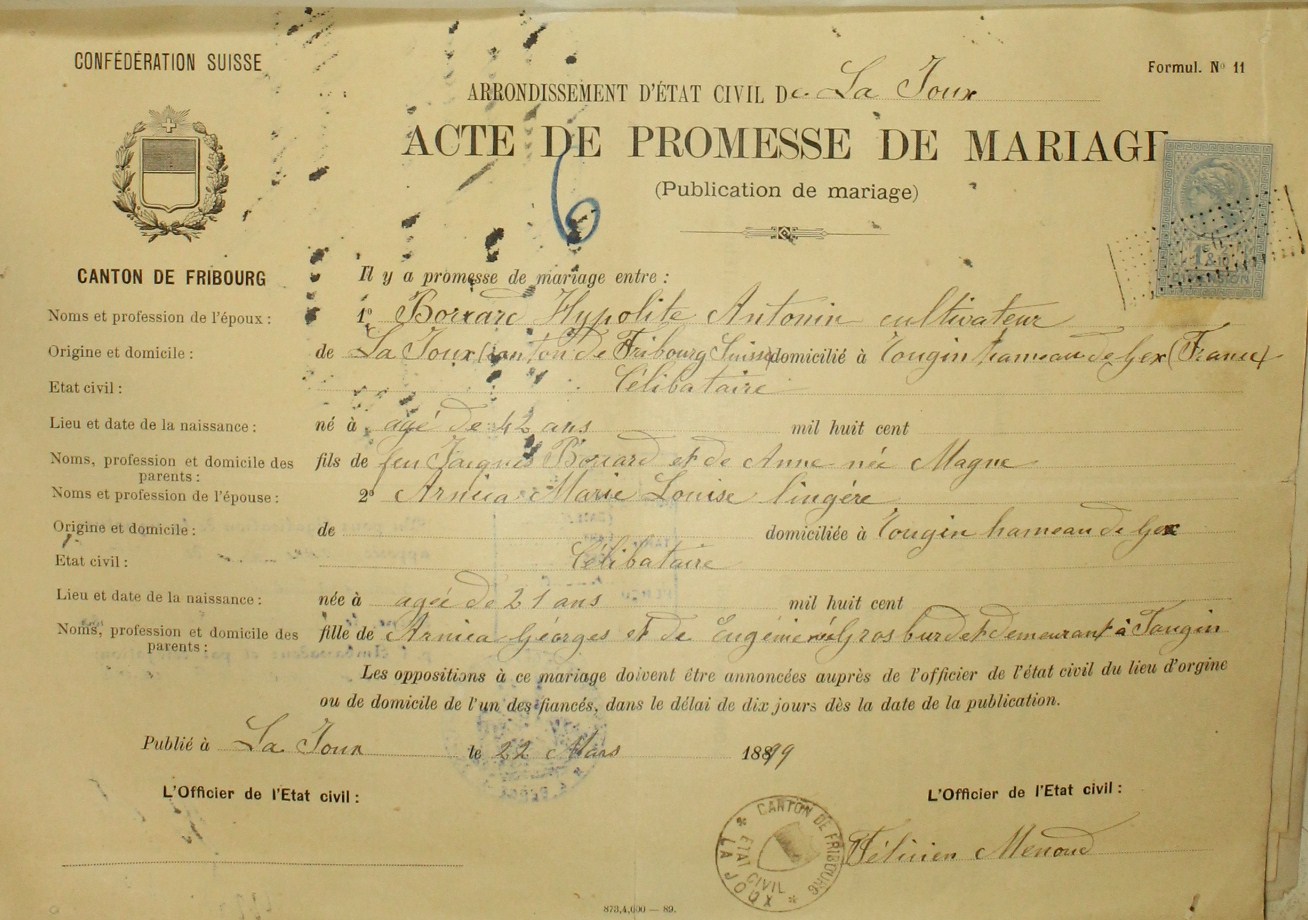 CONFÉDÉRATION SUISSE
Formul. Nº 11
ARRONDISSEMENT D'ÉTAT CIVIL De La Joux
ACTE DE PROMESSE DE MARIAGE
(Publication de mariage)
6
CANTON DE FRIBOURG
Il y a promesse de mariage entre :
Noms et profession de l'époux : 1º Borrard Hypolite Antonin cultivateur
Origine et domicile : de La Joux (Canton de Fribourg Suisse) domicilié à Tougin hameau de Gex (France)
Etat civil : Célibataire
Lieu et date de la naissance : né à agé de 42 ans mil huit cent
Noms, profession et domicile des parents : fils de feu Jacques Borrard et de Anne née Magne
Noms et profession de l'épouse : 2º Arnica Marie Louise lingére
Origine et domicile : de domiciliée à Tougin hameau de Gex
Etat civil : Célibataire
Lieu et date de la naissance : née à agée de 21 ans mil huit cent
Noms, profession et domicile des parents : fille de Arnica Géorges et de Eugénie née Gros burdet demeurant à Tougin
Les oppositions à ce mariage doivent être annoncées auprès de l'officier de l'état civil du lieu d'orgine
ou de domicile de l'un des fiancés, dans le délai de dix jours dès la date de la publication.
Publié à La Joux le 22 Mars 1899
L'Officier de l'Etat civil :
L'Officier de l'Etat civil :
CANTON DE FRIBOURG
ETAT CIVIL
LA JOUX
Félicien Menoud
873,4,000 — 89.